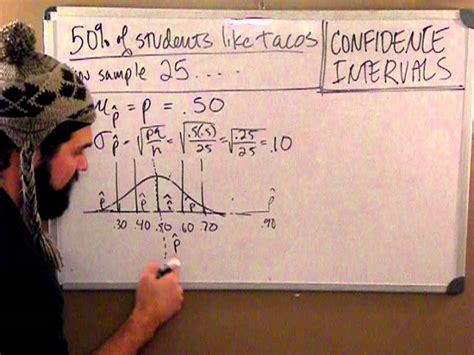 50% of students like tacos
sample 25....
CONFIDENCE
INTERVALS
μp̂ = p = .50
σp̂ = √pq/n = √.5(.5)/25 = √.25/25 = .10
p̂ p̂ p̂ p̂ p̂
.30 .40 .50 .60 .70 .90
p̂